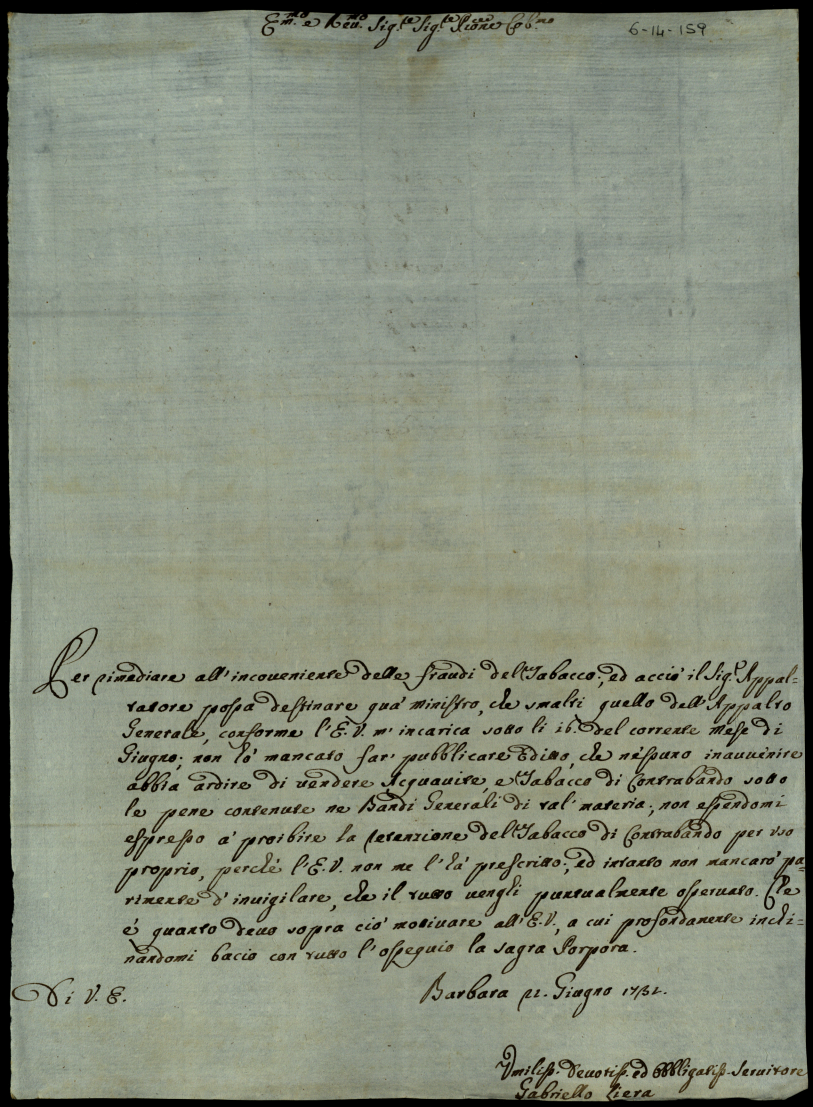 Em.mo e Rev.mo Sig.re Sig.re P.rone Col.mo
6-14-159
Per rimediare all' inconveniente delle fraudi del Tabacco; ed acciò il Sig.r Appal=
tatore possa destinare quà ministro, che smalti quello dell' Appalto
Generale, conforme l' E.V. m' incarica sotto li 16. del corrente mese di
Giugno; non hò mancato far' pubblicare Editto, che nessuno inavvenire
abbia ardire di vendere Acquavite, e Tabacco di Contrabando sotto
le pene contenute ne Bandi Generali di tal' materia; non essendomi
espresso à proibire la retenzione del Tabacco di Contrabando per uso
proprio, perché l' E.V. non me l' hà prescritto; ed intanto non mancarò pa=
rimente d' invigilare, che il tutto venghi puntualmente osservato. Che
é quanto devo sopra ciò motivare all' E.V., a cui profondamente inchi=
nandomi bacio con tutto l' ossequio la sagra Porpora.
Di V. E.
Barbara Giugno
Umiliss. Devotiss. ed Obbligatiss. Servitore
Gabriello